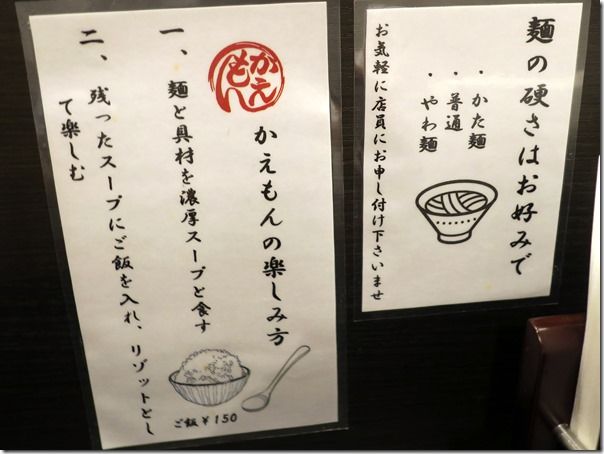 麺の硬さはお好みで
・かた麺
・普通
・やわ麺
お気軽に店員にお申し付け下さいませ
かえもん
かえもんの楽しみ方
一、麺と具材を濃厚スープと食す
二、残ったスープにご飯を入れ、リゾットとし
て楽しむ
ご飯￥150